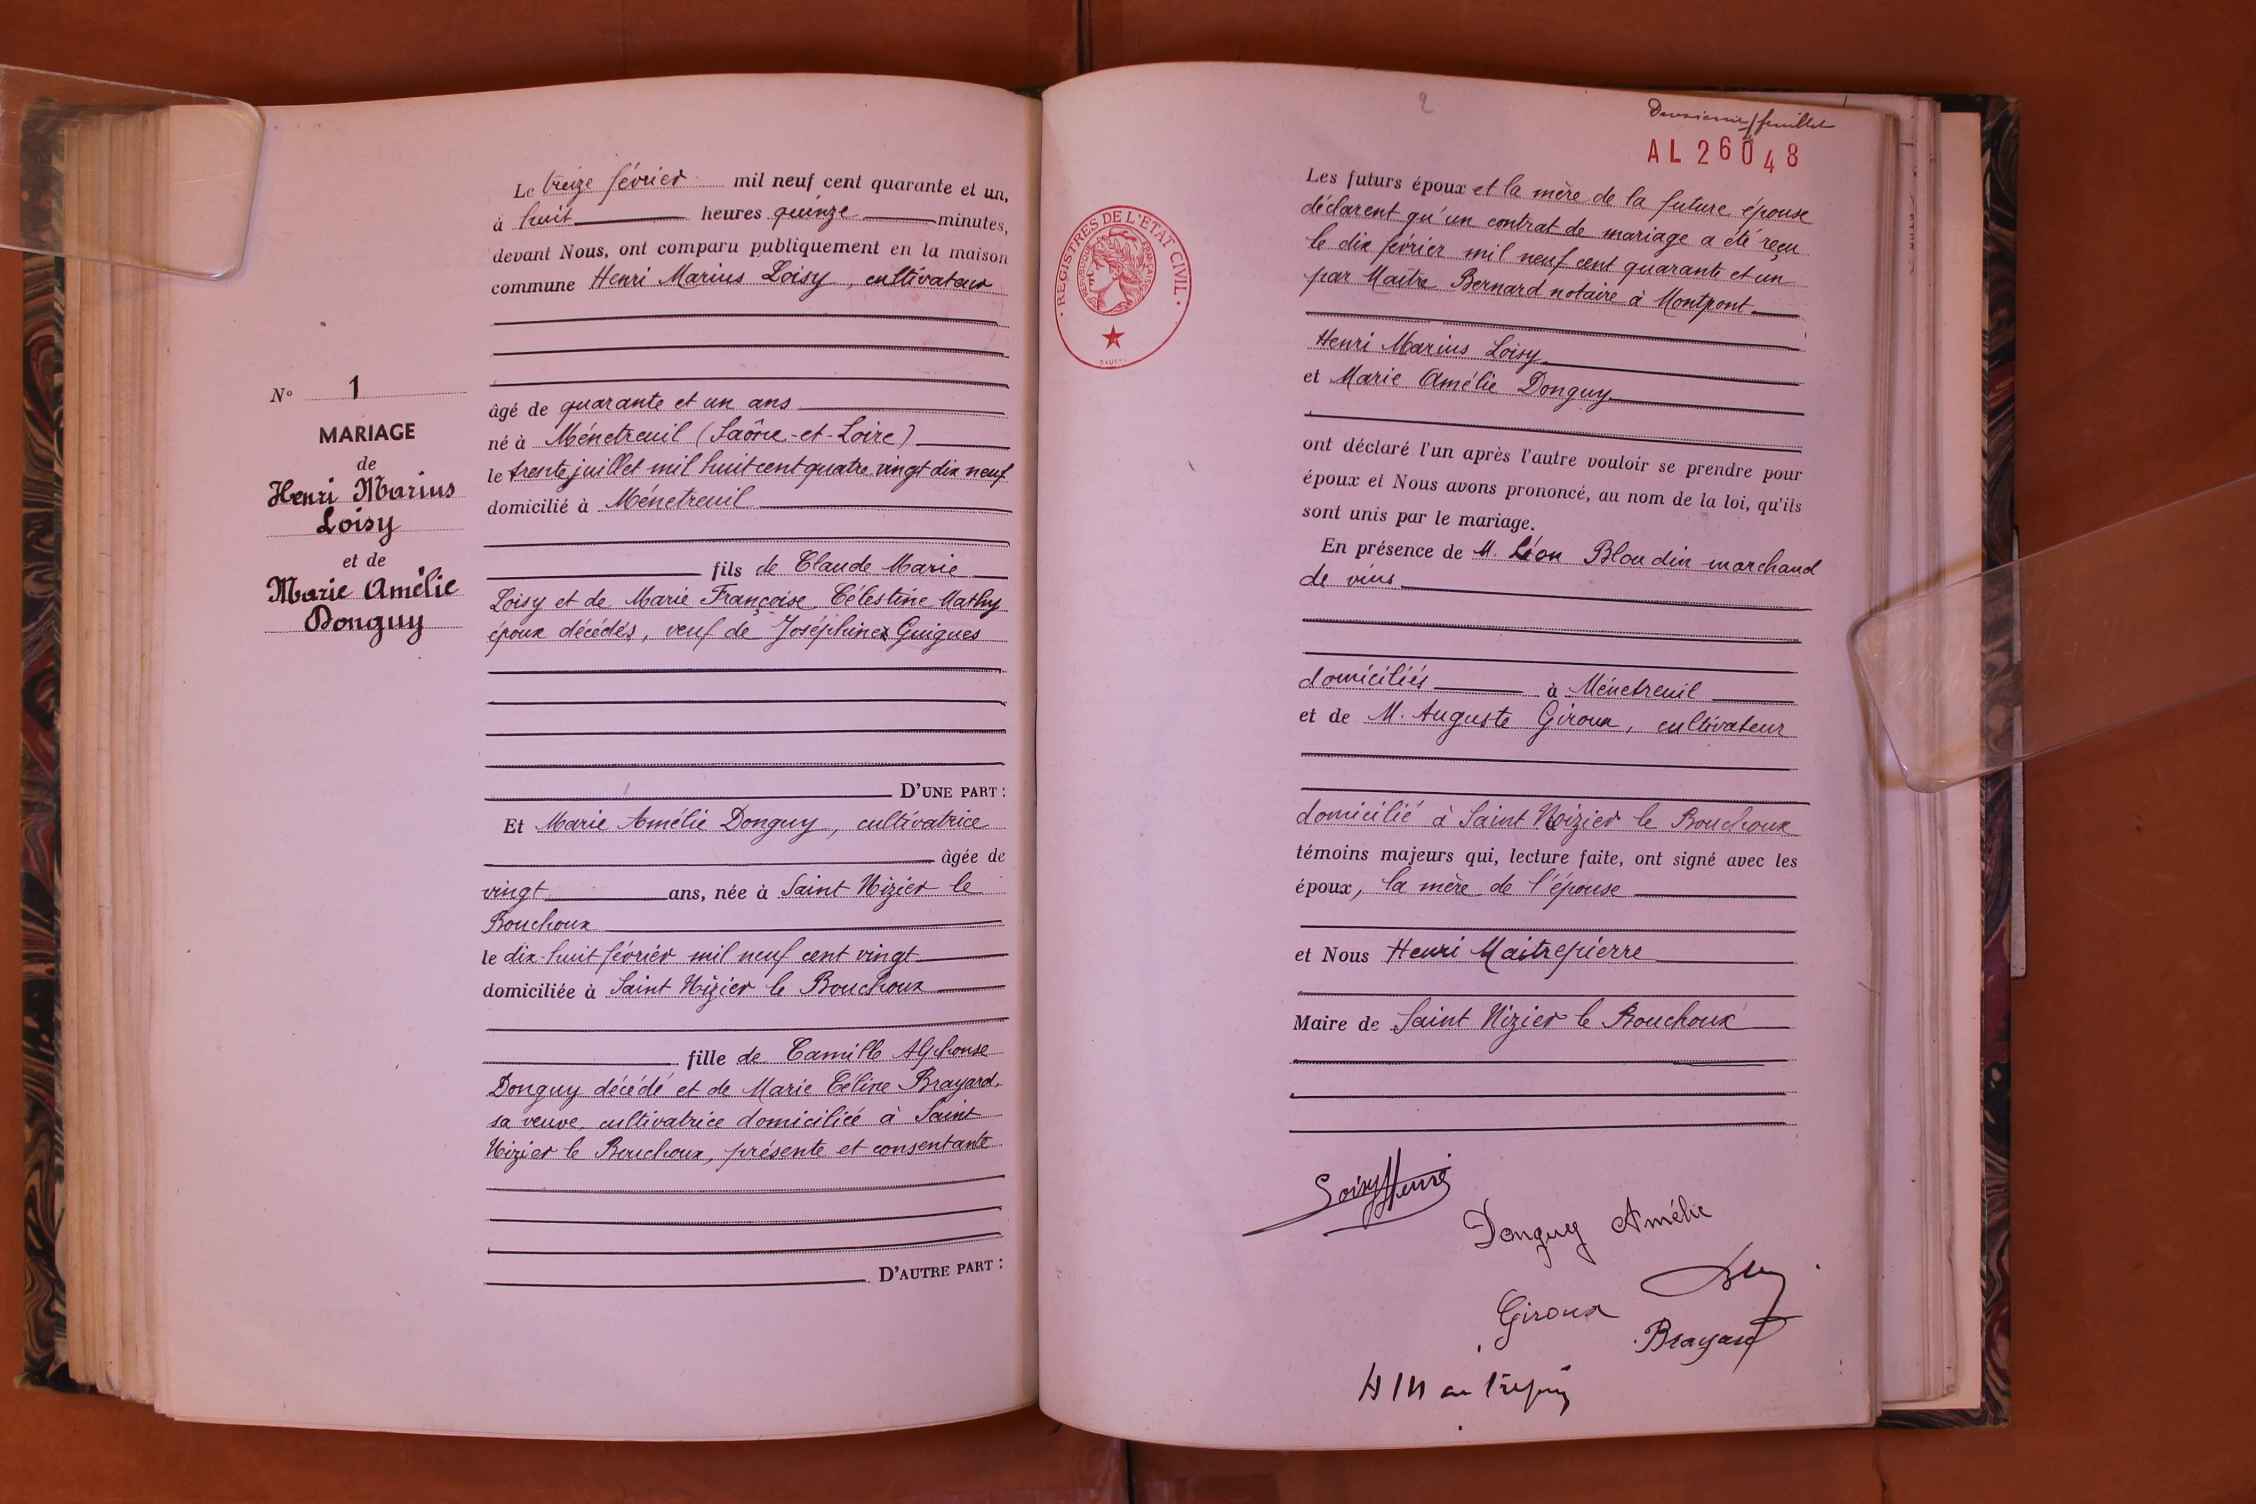 Le treize février mil neuf cent quarante et un,
à huit heures quinze minutes,
devant Nous, ont comparu publiquement en la maison
commune Henri Marius Loisy, cultivateur
N° 1
MARIAGE
de
Henri Marius
Loisy
et de
Marie Amélie
Donguy
âgé de quarante et un ans
né à Ménetreuil (Saône-et-Loire)
le trente juillet mil huit cent quatre vingt dix neuf
domicilié à Ménetreuil
fils de Claude Marie
Loisy et de Marie Françoise Célestine Mathy
époux décédés, veuf de Joséphine Guigues
D'UNE PART :
Et Marie Amélie Donguy, cultivatrice
âgée de
vingt ans, née à Saint Nizier le
Bouchoux
le dix-huit février mil neuf cent vingt
domiciliée à Saint Nizier le Bouchoux
fille de Camille Alphonse
Donguy décédé et de Marie Céline Brayard,
sa veuve, cultivatrice domiciliée à Saint
Nizier le Bouchoux, présente et consentante
D'AUTRE PART :
2
Deuxième feuillet
AL 26048
REGISTRES DE L'ETAT CIVIL
Les futurs époux et la mère de la future épouse
déclarent qu'un contrat de mariage a été reçu
le dix février mil neuf cent quarante et un
par Maître Bernard notaire à Montpont
Henri Marius Loisy
et Marie Amélie Donguy
ont déclaré l'un après l'autre vouloir se prendre pour
époux et Nous avons prononcé, au nom de la loi, qu'ils
sont unis par le mariage.
En présence de M. Léon Blondin marchand
de vins
domiciliés à Ménetreuil
et de M. Auguste Giroux, cultivateur
domicilié à Saint Nizier le Bouchoux
témoins majeurs qui, lecture faite, ont signé avec les
époux, la mère de l'épouse
et Nous Henri Maitrepierre
Maire de Saint Nizier le Bouchoux
Loisy Henri
Donguy Amélie
Giroux
Brayard